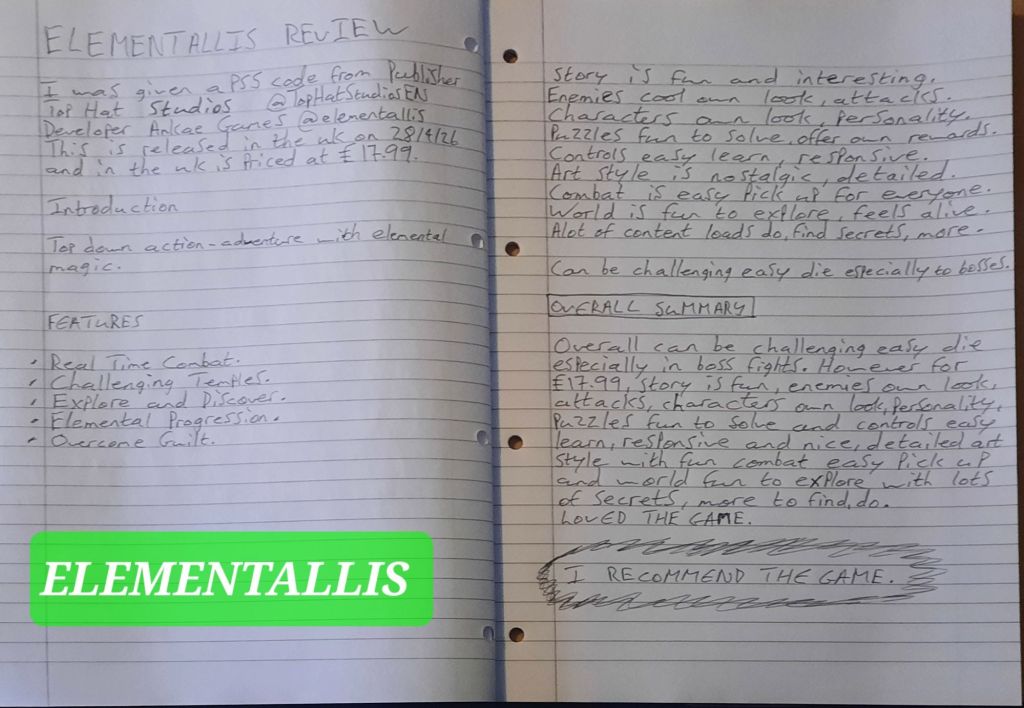 ELEMENTALLIS REVIEW
I was given a PS5 code from Publisher
Top Hat Studios @TopHatStudiosEN
Developer Ankae Games @elementallis
This is released in the uk on 28/4/26
and in the uk is Priced at £17.99.
Introduction
Top down action-adventure with elemental
magic.
FEATURES
• Real Time Combat.
• Challenging Temples.
• Explore and Discover.
• Elemental Progression.
• Overcome Guilt.
ELEMENTALLIS
Story is fun and interesting.
Enemies cool own look, attacks.
Characters own look, Personality.
Puzzles fun to solve, offer own rewards.
Controls easy learn, responsive.
Art style is nostalgic, detailed.
Combat is easy Pick up for everyone.
World is fun to explore, feels alive.
Alot of content loads do, find secrets, more.
Can be challenging easy die especially to bosses.
OVERALL SUMMARY
Overall can be challenging easy die
especially in boss fights. However for
£17.99, story is fun, enemies own look,
attacks, characters own look, Personality,
Puzzles fun to solve and controls easy
learn, responsive and nice, detailed art
style with fun combat easy Pick up
and world fun to explore with lots
of secrets, more to find, do.
LOVED THE GAME.
I RECOMMEND THE GAME.